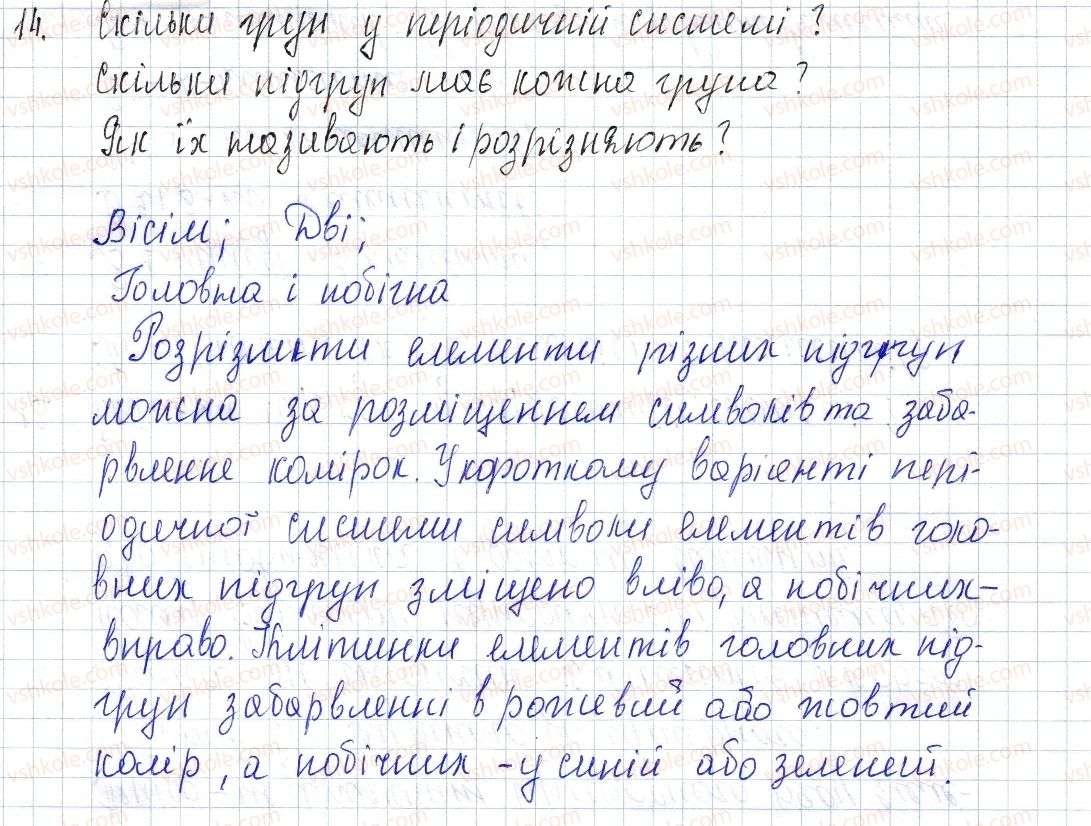 14. Скільки груп у періодичній системі?
Скільки підгруп має кожна група?
Як їх називають і розрізняють?
Вісім; Дві;
Головна і побічна
Розрізнити елементи різних підгруп
можна за розміщенням символів та заба-
рвленне комірок. У короткому варіанті пері-
одичної системи символи елементів голо-
вних підгруп зміщено вліво, а побічних-
вправо. Клітинки елементів головних під-
груп забарвленні в рожевий або жовтий
колір, а побічних - у синій або зелений.